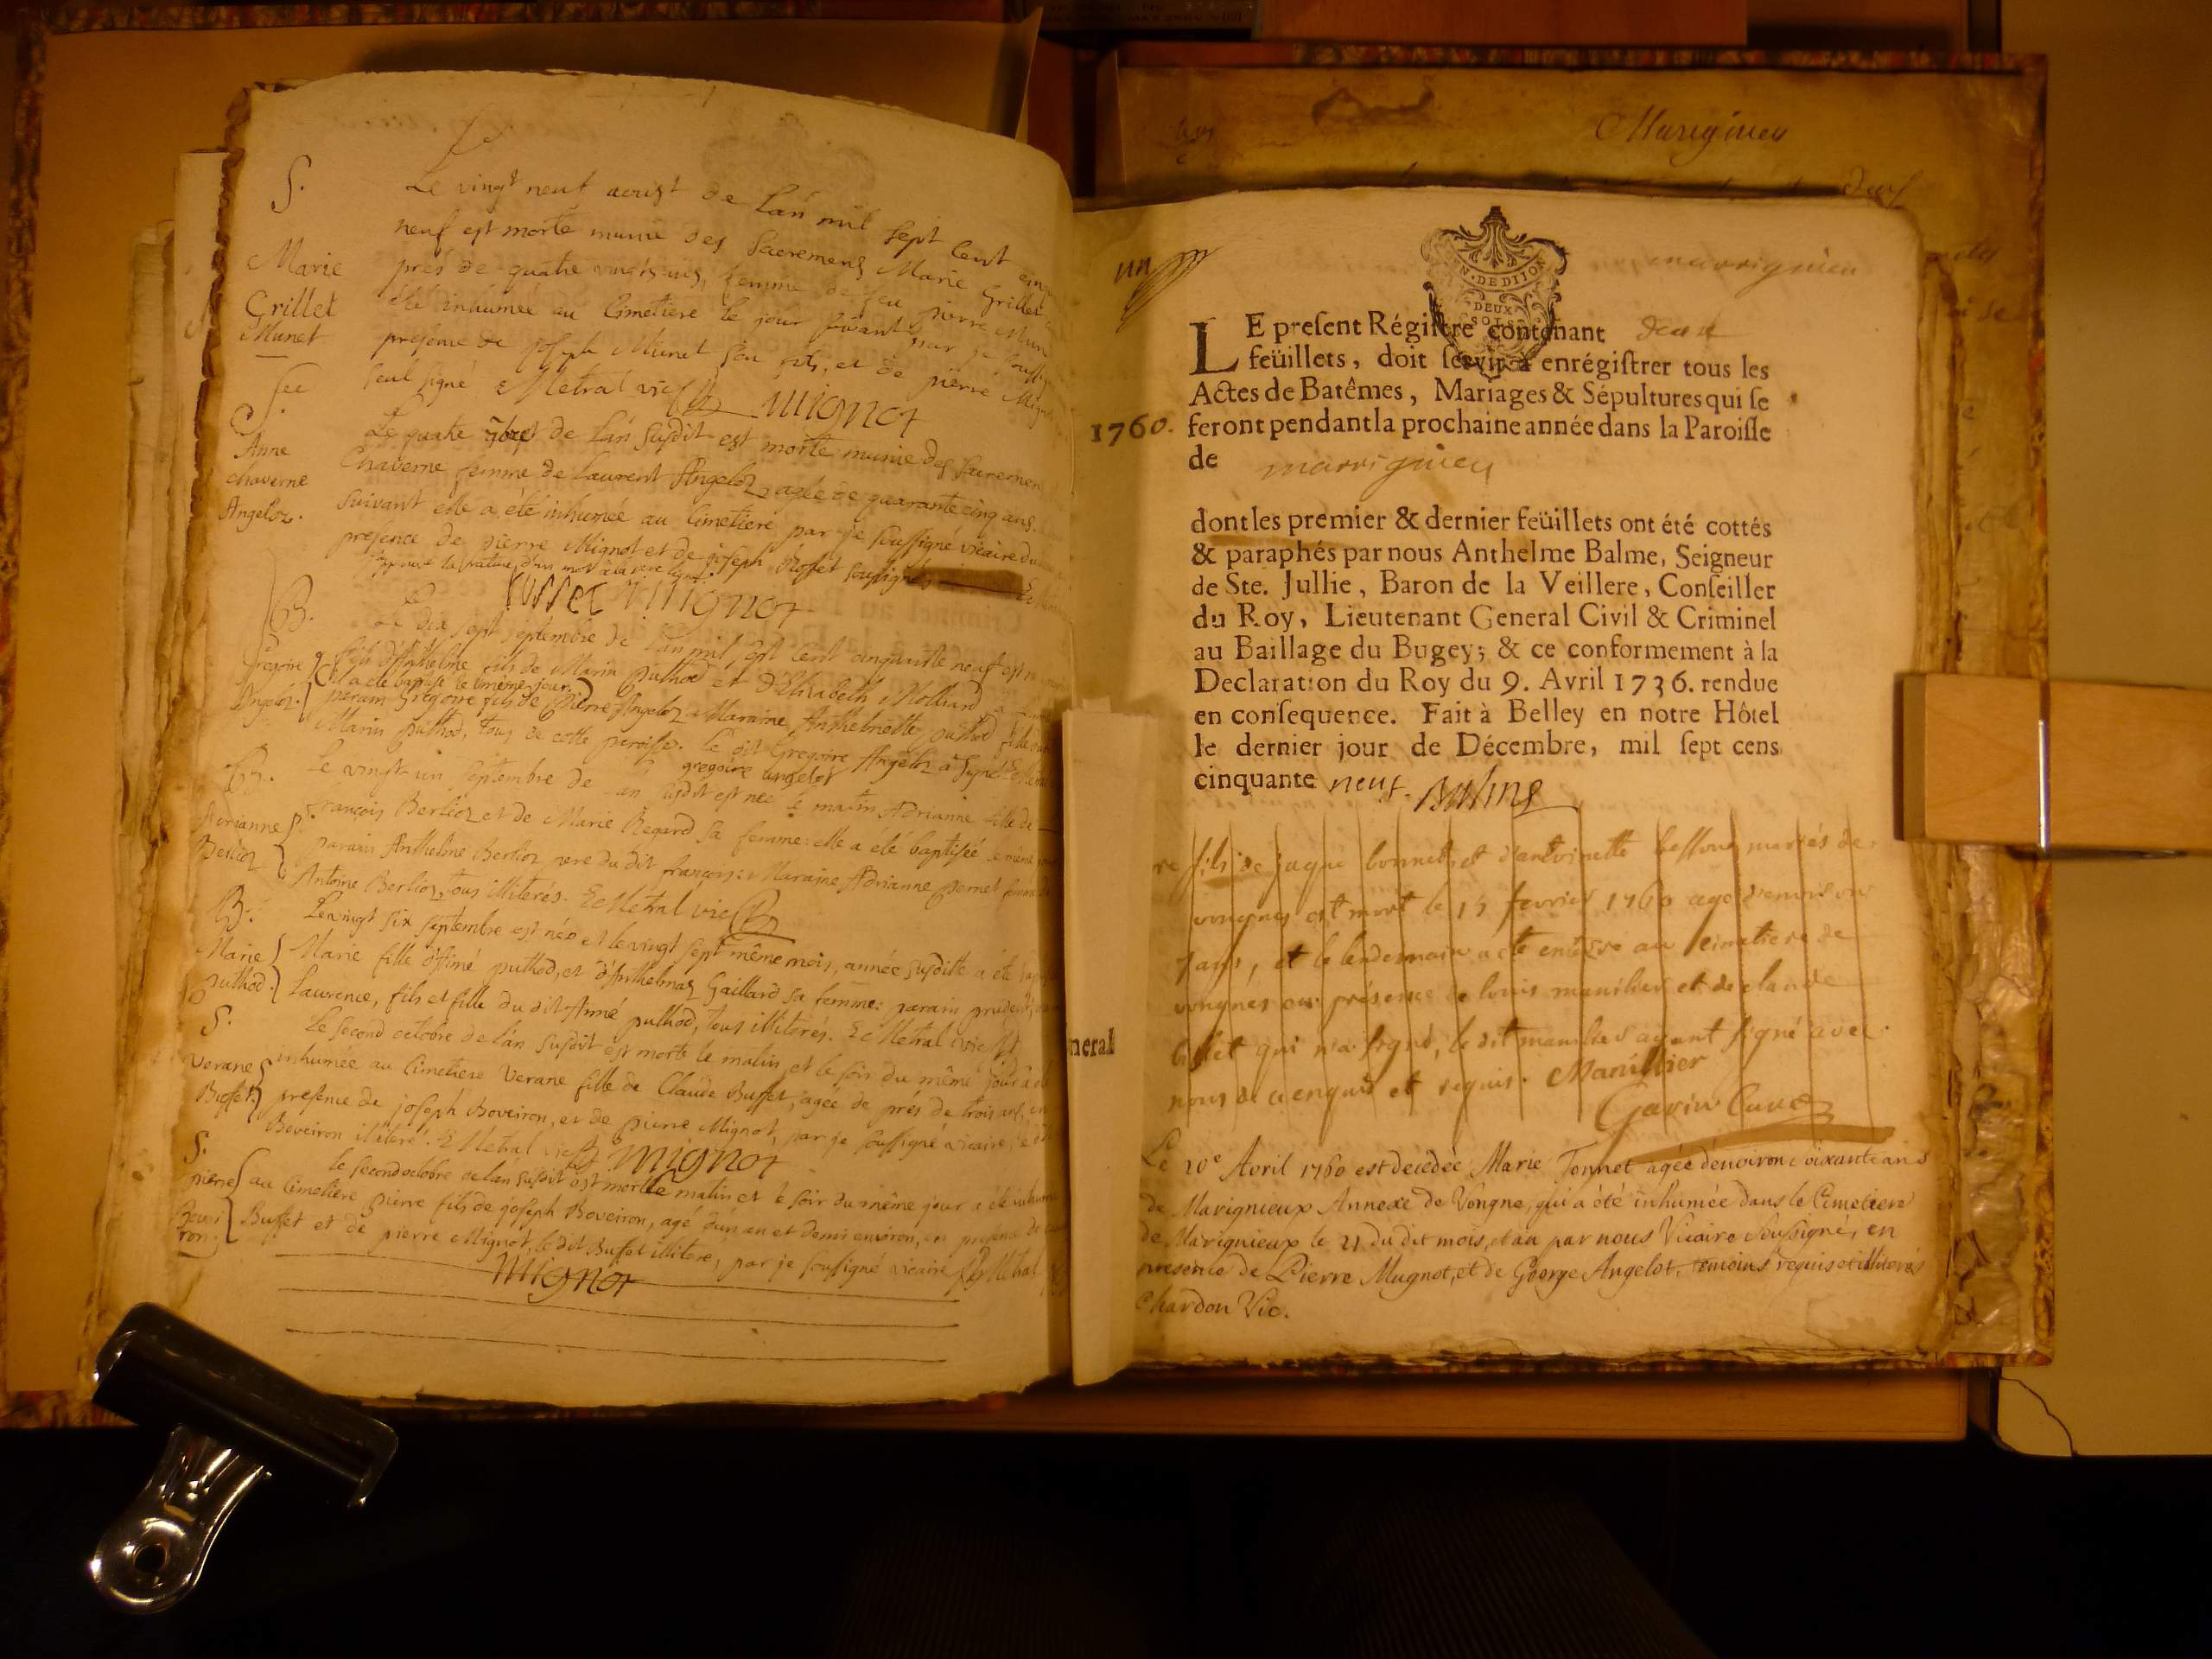 S.
Le vingt neuf aoust de l'an mil sept cent cin
neuf est morte munie des Sacremens Marie Grillet
Marie
prés de quatre vingts ans, femme de feu pierre Mun
Grillet
été inhumée au Cimetiere le jour suivant par je soussig
Munet
presence de joseph Munet son fils, et de pierre Mign
seul signé E Metral vic
mignot
S.
Le quatre de l'an susdit est morte munie des Sacremen
Anne
chaverne
Angeloz.
Chaverne femme de Laurent Angeloz, agée de quarante cinq ans.
suivant elle a été inhumée au Cimetiere par je soussigné vicaire du
presence de pierre Mignot et de joseph Rosset soussignés
Rosset mignot
B.
Le dix sept septembre de l'an mil sept cent cinquante neuf est
Gregoire
Angeloz.
fils d'Anthelme fils de Marin Puthod et d'Elizabeth Molliard
il a eté baptisé le même jour.
parain Gregoire fils de Pierre Angeloz Maraine Anthelmette puthod fille
Marin puthod, tous de cette paroisse. Le dit Gregoire Angeloz a signé
gregoire angelot
B.
Le vingt un septembre de l'an susdit est née le matin Adrianne fille de
Adrianne
Berlioz
françois Berlioz et de Marie Regard sa femme: elle a été baptisée le même
parain Anthelme Berlioz pere du dit françois: Maraine Adrianne pernet femme
Antoine Berlioz, tous illiterés. E Metral vic
B.
Le vingt six septembre est née et le vingt sept même mois, année susditte a été
Marie
puthod.
Marie fille d'Aimé puthod, et d'Anthelmaz Gaillard sa femme: parain prudent,
Laurence, fils et fille du dit Aimé puthod, tous illiterés. E Metral vic
S.
Le second octobre de l'an susdit est morte le matin et le soir du même jour a
Verane
Buffet.
inhumée au Cimetiere Verane fille de Claude Buffet, agée de prés de trois ans, en
presence de joseph Boveiron, et de pierre Mignot, par je soussigné vicaire, le
Boveiron illiteré. E Metral vic mignot
S.
le second octobre de l'an susdit est mort le matin et le soir du même jour a été inhum
pierre
Bovei
ron.
au Cimetiere pierre fils de joseph Boveiron, agé d'un an et demi environ, en presence de
Buffet et de pierre Mignot, le dit Buffet illiteré, par je soussigné vicaire E Metral
mignot
Marignieu
un
marrignieu
N. DE DIJON
DEUX
SOLS
LE present Régistre contenant deux
feüillets, doit servir à enrégistrer tous les
Actes de Batêmes, Mariages & Sépultures qui se
1760. feront pendant la prochaine année dans la Paroisse
de marrignieu
dont les premier & dernier feüillets ont été cottés
& paraphés par nous Anthelme Balme, Seigneur
de Ste. Jullie, Baron de la Veillere, Conseiller
du Roy, Lieutenant General Civil & Criminel
au Baillage du Bugey; & ce conformement à la
Declaration du Roy du 9. Avril 1736. rendue
en consequence. Fait à Belley en notre Hôtel
le dernier jour de Décembre, mil sept cens
cinquante neuf. Balme
fils de jaque bonnet et d'antoinette bessous mariés de
vongnes est mort le 15 fevrier 1760 age denviron
7 ans, et le lendemain a eté enterré au cimetiere de
vongnes en présence de louis manilier et de claude
billet qui n'a signé, le dit manilier ayant signé avec
nous de ce enquis et requis. Manillier
Gavin Curé
neral
Le 20e Avril 1760 est decedée Marie Tonnet agée d'environ soixante ans
de Marignieux Annexe de Vongne, qui a été inhumée dans le Cimetiere
de Marignieux le 21 du dit mois, et an par nous Vicaire soussigné, en
presence de Pierre Mugnot, et de George Angelot, temoins requis et illiterés
Chardon Vic.